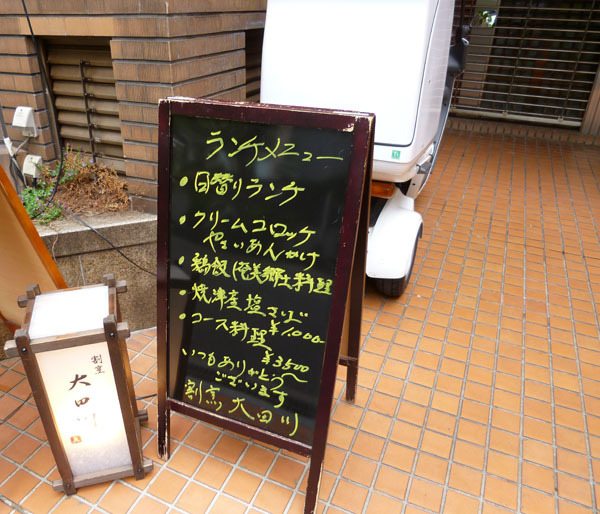 ランチメニュー
・日替りランチ
・クリームコロッケ
やさいあんかけ
・鶏飯(奄美郷土料理
・焼津産塩さば
¥1,000
・コース料理
¥3500
いつもありがとう〜
ございます
割烹 大田川
割烹
大田川